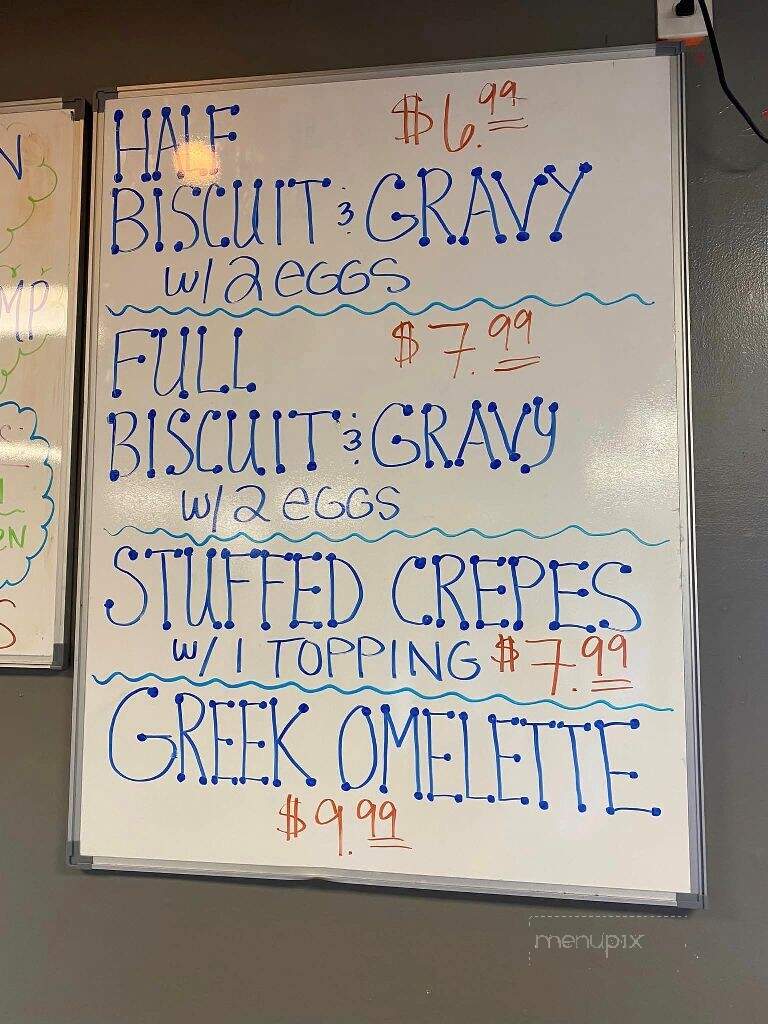 HALF $6.99
BISCUIT & GRAVY
w/ 2 eGGS
FULL $7.99
BISCUIT & GRAVY
w/ 2 eGGS
STUFFED CREPES
w/ 1 TOPPING $7.99
GREEK OMELETTE
$9.99
menupix